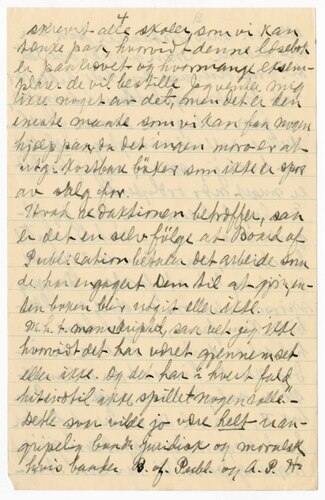 skrevet alle skoler som vi kan
tænke paa, hvorvidt denne læsebok
er paakrævet og hvormange eksem-
plarer de vil bestille. Jeg venter mig
ikke noget av det, men det er den
eneste maate som vi kan faa nogen
hjælp paa, da det ingen moro er at
utgi kostbare bøker som ikke er spor
av salg for.
Hvad redaktionen betræffer, saa
er det en selvfølge at Board of
Publication betaler det arbeide som
de har engagert Dem til at gjøre, en-
ten boken blir utgit eller ikke.
M.h.t. manuskriptet, saa vet jeg ikke
hvorvidt det har været gjennemset
eller ikke. Og det har i hvert fald
hitindtil ikke spillet nogen rolle."
Dette svar vilde jo være helt uan-
gripelig baade juridisk og moralsk
hvis baade B. of Publ. og A. P. H.